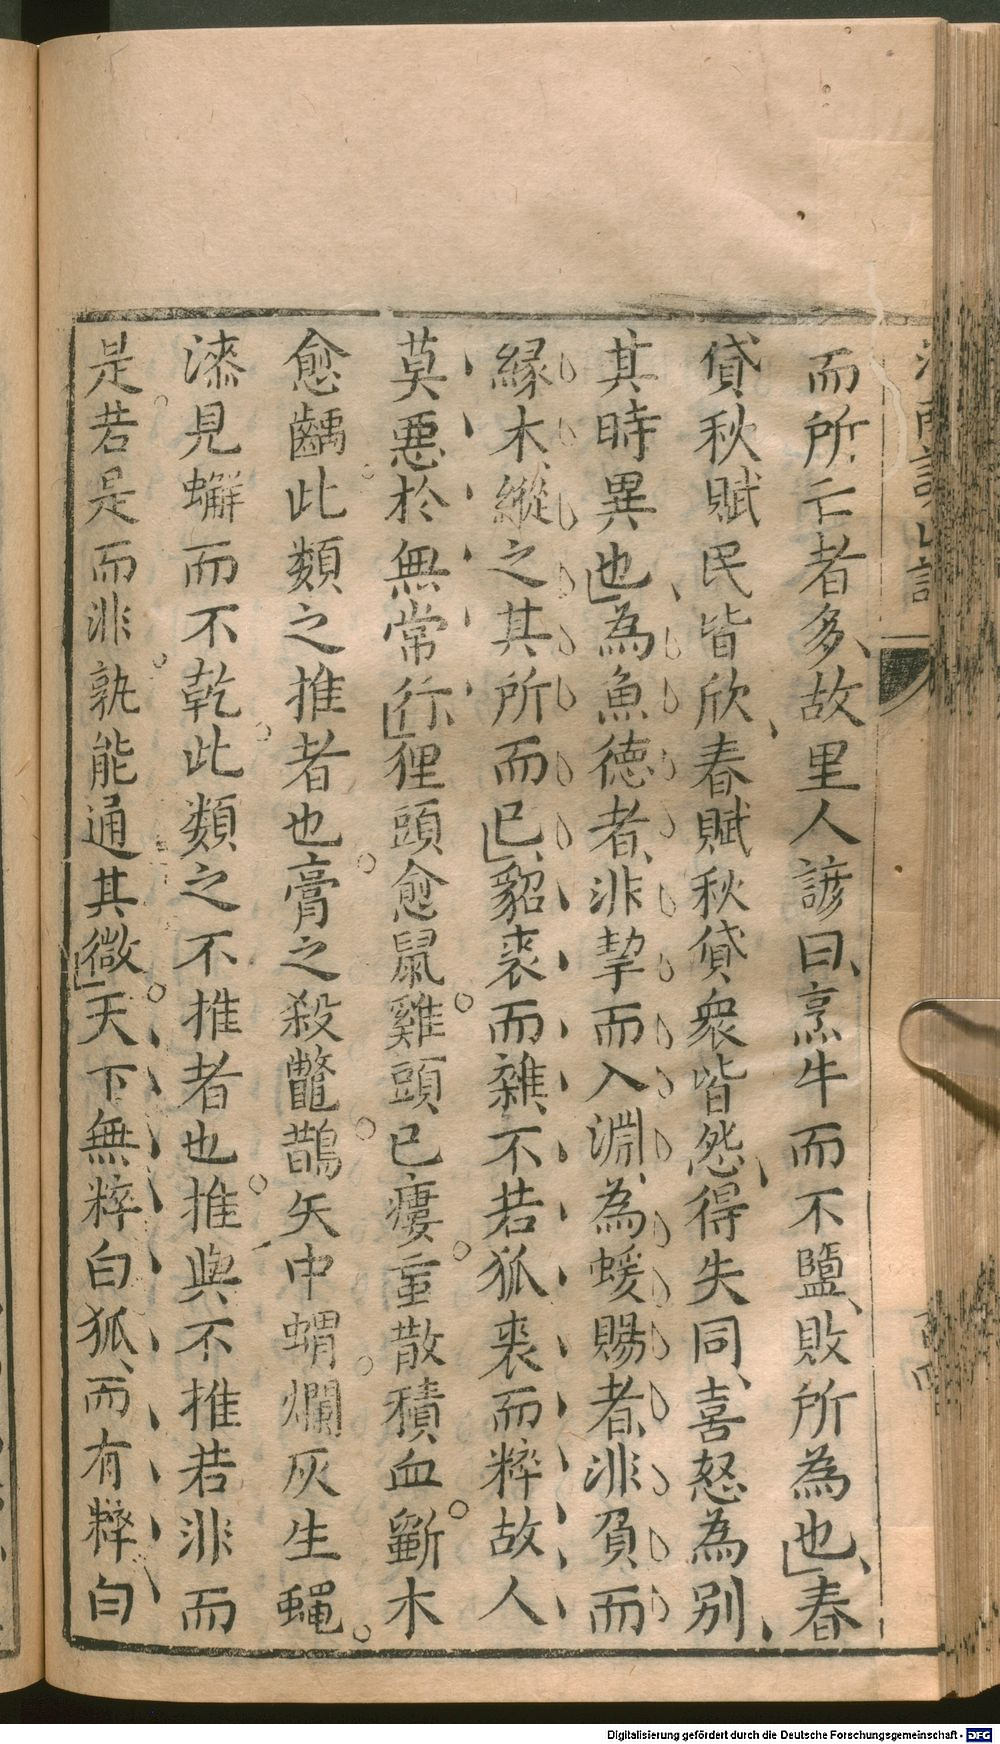 而所亡者多故里人諺曰烹牛而不鹽敗所為也春
貸秋賦民皆欣春賦秋貸衆皆怨得失同喜怒為別
其時異也為魚德者非挈而入淵為蝯賜者非負而
緣木縱之其所而已貂裘而雜不若狐裘而粹故人
莫惡於無常行狸頭愈鼠雞頭已瘻䖟散積血斷木
愈齲此類之推者也膏之殺鼈鵲矢中蝟爛灰生蠅
漆見蠏而不乾此類之不推者也推與不推若非而
是若是而非孰能通其微天下無粹白狐而有粹白
Digitalisierung gefördert durch die Deutsche Forschungsgemeinschaft - DFG